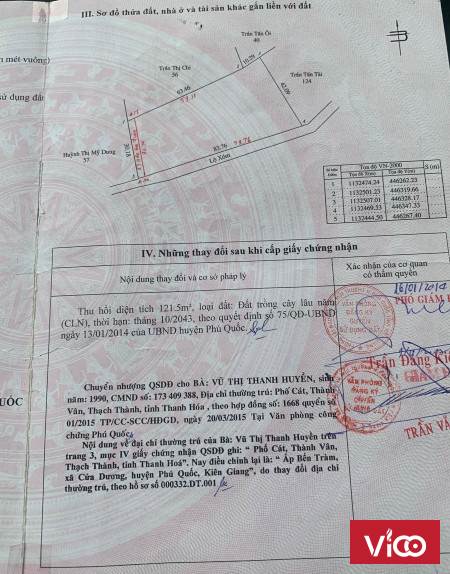 III. Sơ đồ thửa đất, nhà ở và tài sản khác gắn liền với đất
n mét vuông)
sử dụng đất
Trần Văn Ôi
46
Trần Thị Chi
56
10.29
63.46
Trần Tấn Tài
124
42.09
30.18
Huỳnh Thị Mỹ Dung
57
83.76
Lộ Xóm
Tọa độ VN-2000
S (m)
1 1132474.24 446262.23
2 1132501.23 446319.66
3 1132507.01 446328.17
4 1132469.53 446347.33
5 1132444.50 446267.40
IV. Những thay đổi sau khi cấp giấy chứng nhận
Nội dung thay đổi và cơ sở pháp lý
Xác nhận của cơ quan
có thẩm quyền
16/01/2014
PHÓ GIÁM Đ
Thu hồi diện tích 121.5m², loại đất: Đất trồng cây lâu năm
(CLN), thời hạn: tháng 10/2043, theo quyết định số 75/QĐ-UBND
ngày 13/01/2014 của UBND huyện Phú Quốc.
VĂN PHÒNG
ĐĂNG KÝ
QUYỀN
SỬ DỤNG ĐẤT
Trần Đăng
Chuyển nhượng QSDĐ cho BÀ: VŨ THỊ THANH HUYỀN, sinh
năm: 1990, CMND số: 173 409 388, Địa chỉ thường trú: Phố Cát, Thành
Vân, Thạch Thành, tỉnh Thanh Hóa, theo hợp đồng số: 1668 quyển số
01/2015 TP/CC-SCC/HĐGD, ngày 20/03/2015 Tại Văn phòng công
chứng Phú Quốc.
VĂN PHÒNG
ĐĂNG KÝ
QUYỀN
TRẦN VĂ
UỐC
Nội dung về đại chỉ thường trú của Bà: Vũ Thị Thanh Huyền trên
trang 3, mục IV giấy chứng nhận QSDĐ ghi: “ Phố Cát, Thành Vân,
Thạch Thành, tỉnh Thanh Hoá”. Nay điều chỉnh lại là: “ Ấp Bến Tràm,
xã Cửa Dương, huyện Phú Quốc, Kiên Giang”, do thay đổi địa chỉ
thường trú, theo hồ sơ số 000332.DT.001
ViCO